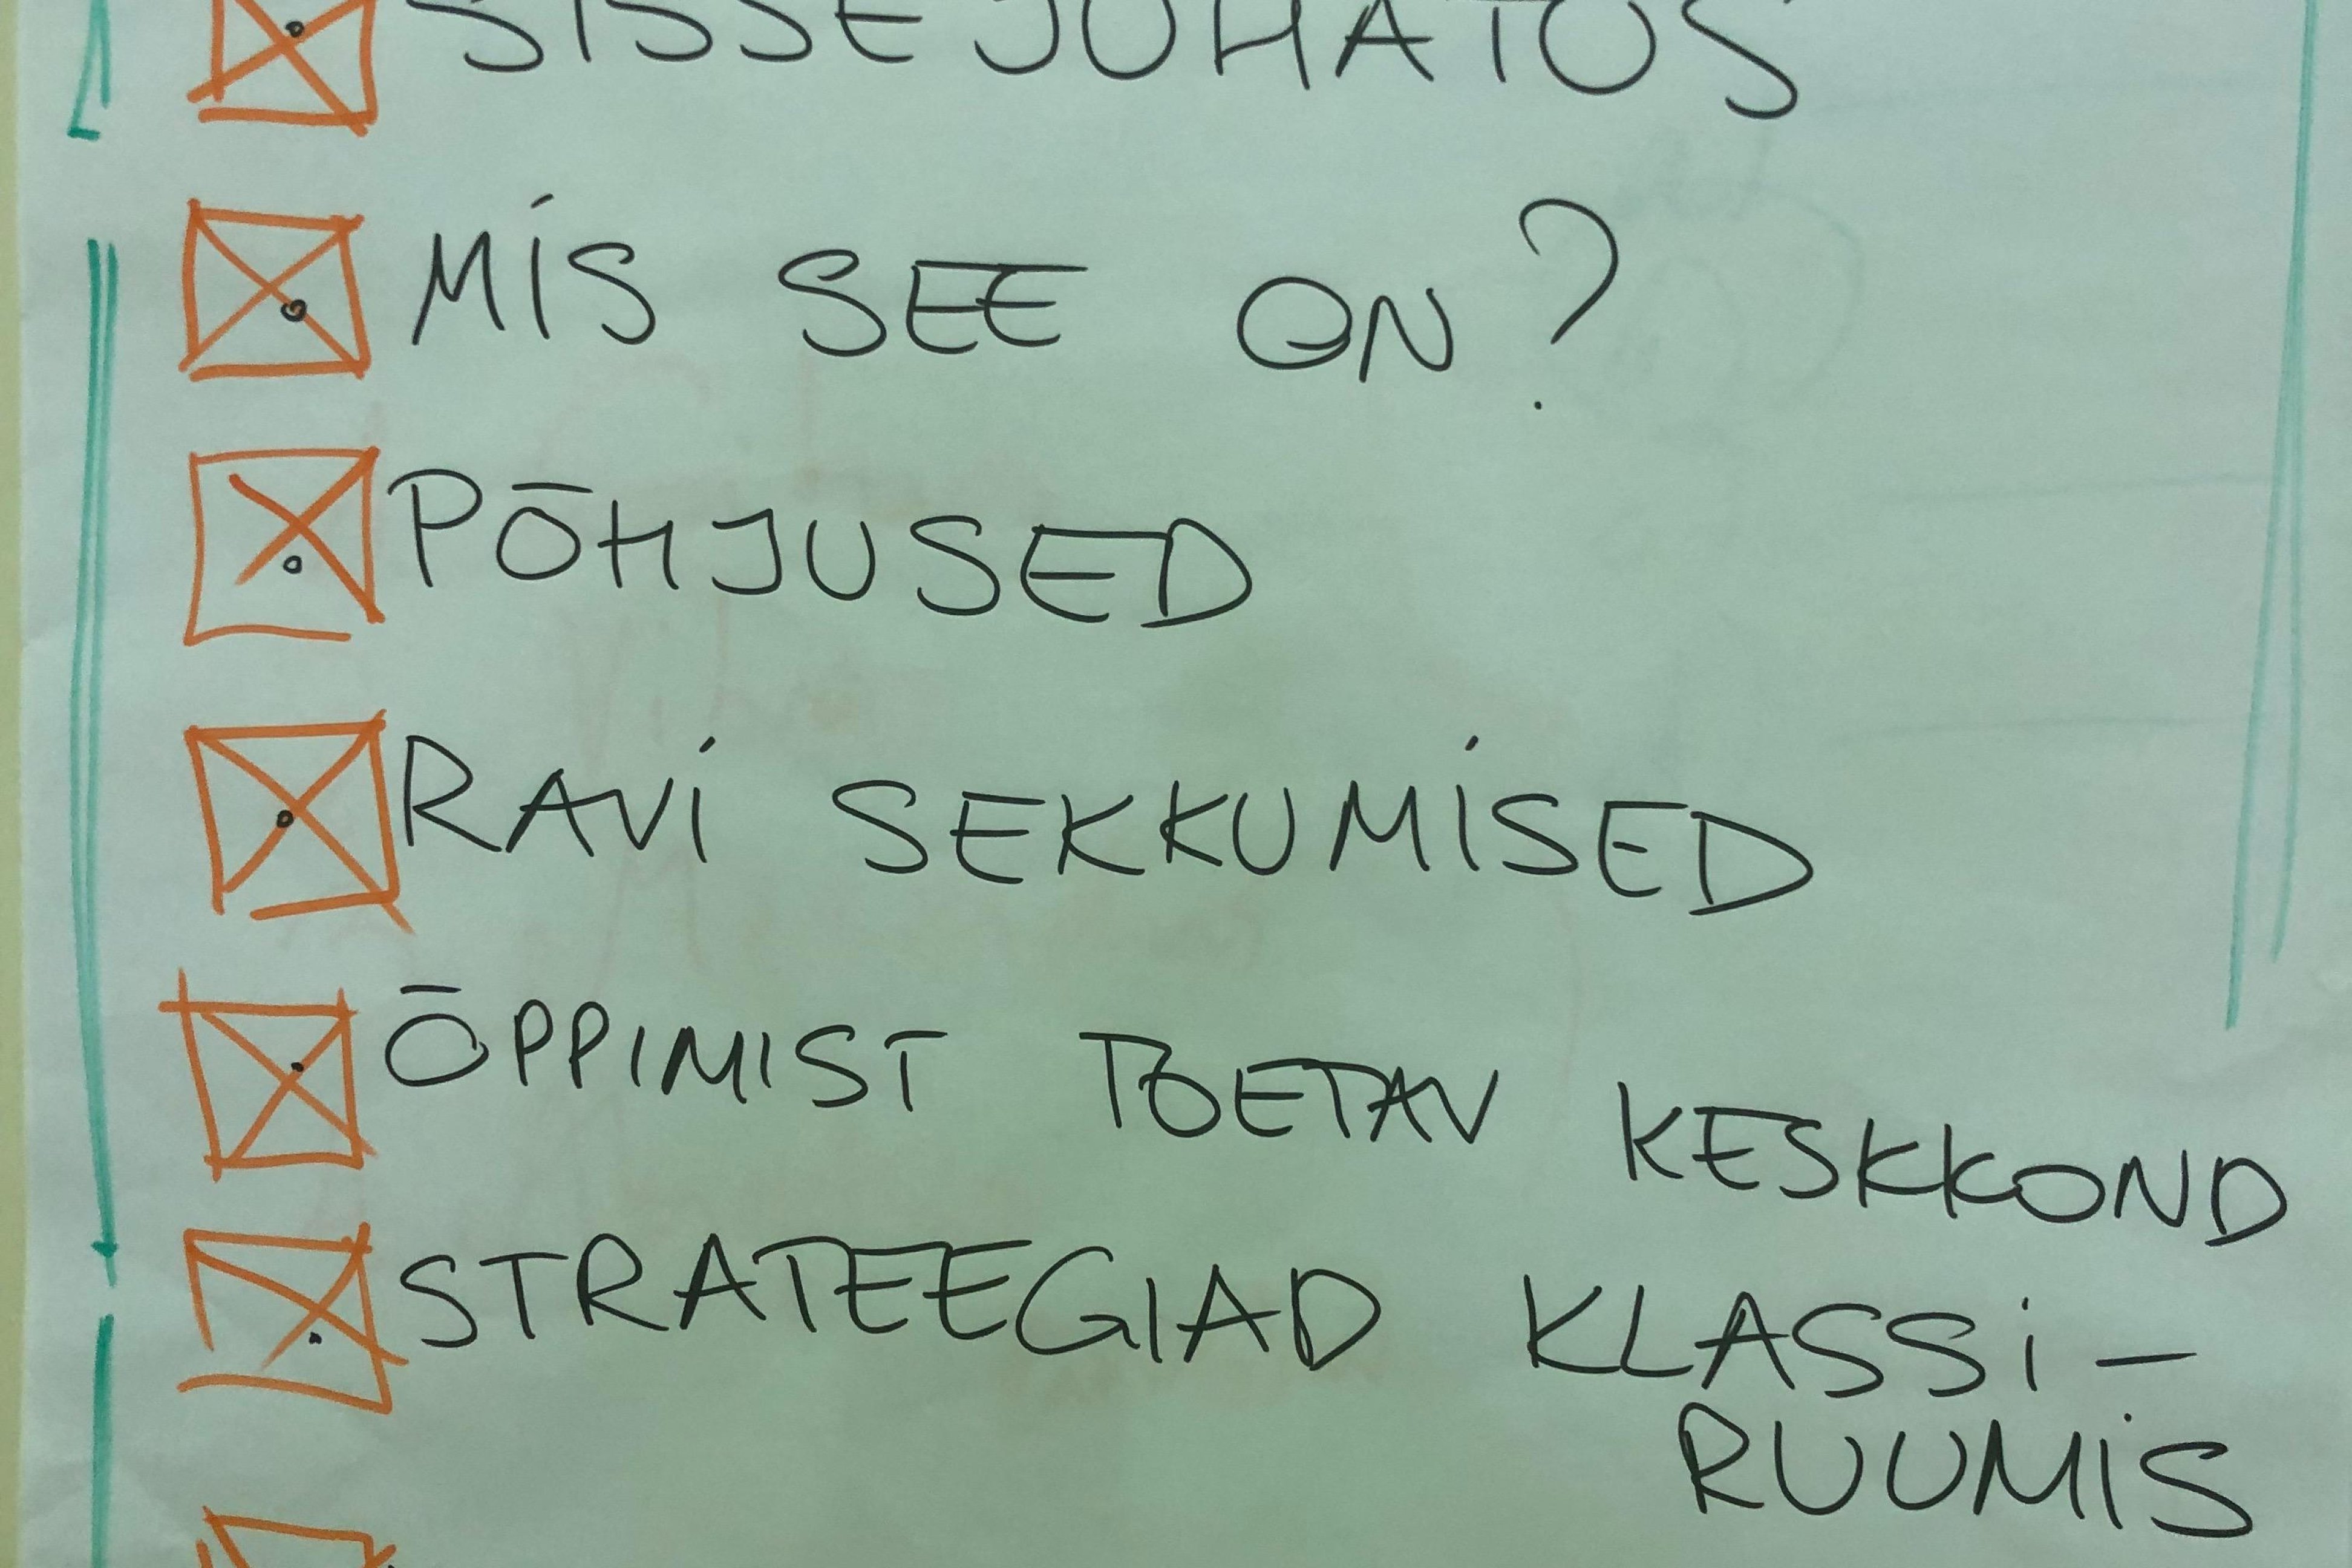 SISSEJUHATUS
MIS SEE ON?
PÕHJUSED
RAVI SEKKUMISED
ÕPPIMIST TOETAV KESKKOND
STRATEEGIAD KLASSI-
RUUMIS